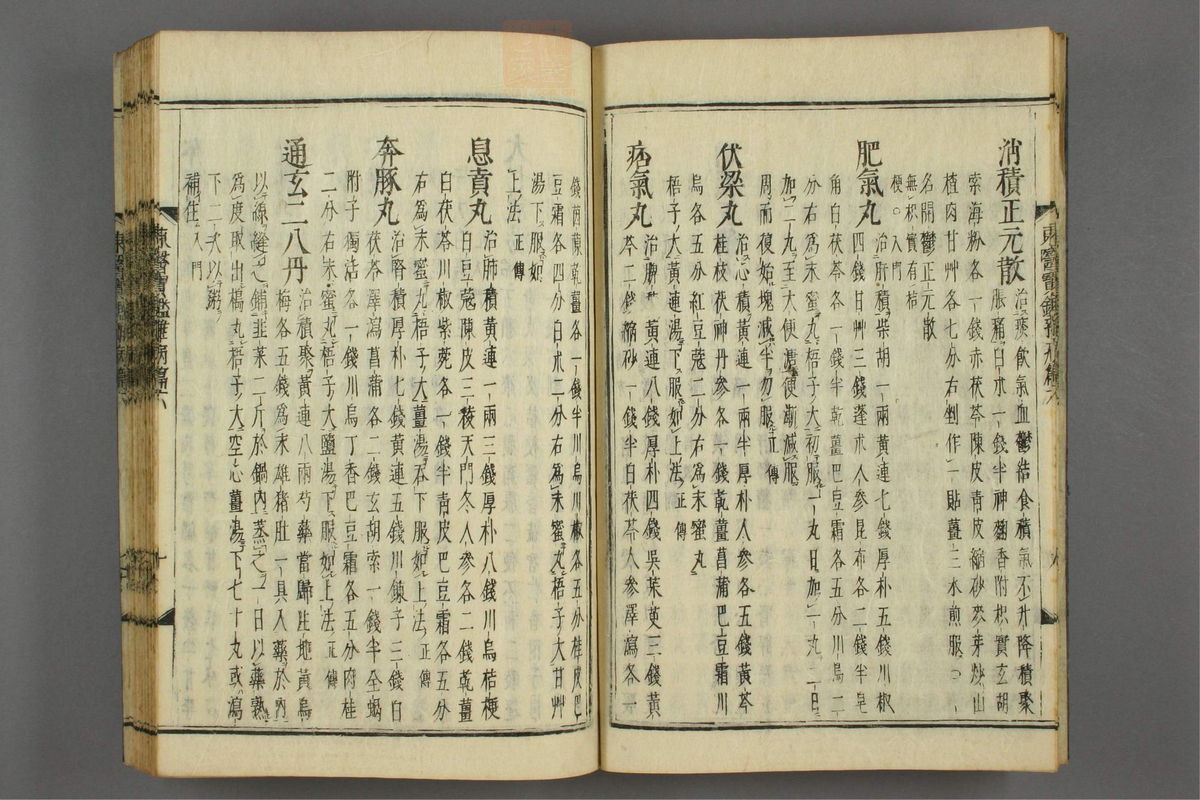 消積正元散 治痰飮氣血鬱結食積氣不升降積聚
脹痛白朮一錢半神麴香附枳實玄胡
索海粉各一錢赤茯苓陳皮靑皮縮砂麥芽炒山
楂肉甘艸各七分右剉作一貼薑三水煎服○一
名開鬱正元散
無枳實有桔
梗○入門
肥氣丸 治肝積柴胡一兩黃連七錢厚朴五錢川椒
四錢甘艸三錢蓬朮人參昆布各二錢半皂
角白茯苓各一錢半乾薑巴豆霜各五分川烏二
分右爲末蜜丸梧子大初服一丸日加一丸二日
加二丸至大便溏便漸減服
周而復始塊減半勿服正傳
伏梁丸 治心積黃連一兩半厚朴人參各五錢黃芩
桂枝茯神丹參各一錢乾薑菖蒲巴豆霜川
烏各五分紅豆蔲二分右爲末蜜丸
梧子大黃連湯下服如上法正傳
痞氣丸 治脾積黃連八錢厚朴四錢吳茱萸三錢黃
芩二錢縮砂一錢半白茯苓人參澤瀉各一
錢茵蔯乾薑各一錢半川烏川椒各五分桂皮巴
豆霜各四分白朮二分右爲末蜜丸梧子大甘艸
湯下服如
上法正傳
息賁丸 治肺積黃連一兩三錢厚朴八錢川烏桔梗
白豆蔲陳皮三稜天門冬人參各二錢乾薑
白茯苓川椒紫菀各一錢半靑皮巴豆霜各五分
右爲末蜜丸梧子大薑湯呑下服如上法正傳
奔豚丸 治腎積厚朴七錢黃連五錢川鍊子三錢白
茯苓澤瀉菖蒲各二錢玄胡索一錢半全蝎
附子獨活各一錢川烏丁香巴豆霜各五分肉桂
二分右末蜜丸梧子大鹽湯下服如上法正傳
通玄二八丹 治積聚黃連八兩芍藥當歸生地黃烏
梅各五錢爲末雄猪肚一具入藥於內
以線縫之鋪韭菜二斤於鍋內蒸之一日以藥熟
爲度取出擣丸梧子大空心薑湯下七十丸或瀉
下一二次以粥
補住入門
東醫寶鑑雜病篇六